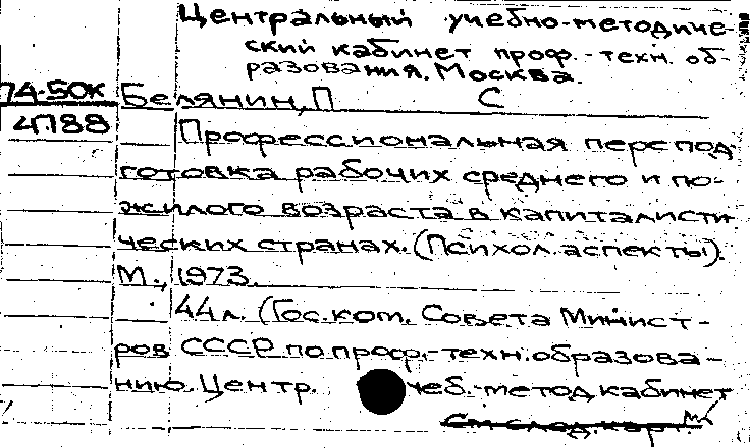 Центральный учебно-методиче-
ский кабинет проф.-техн. об-
разования, Москва.
74-50к Белянин, П С
4788 Профессиональная перепод
готовка рабочих среднего и по-
жилого возраста в капиталисти
ческих странах. (Психол. аспекты).
М., 1973.
44 л. (Гос. ком. Совета Минист-
ров СССР по проф.-техн. образова-
нию. Центр. учеб.-метод. кабинет
См след. карт.